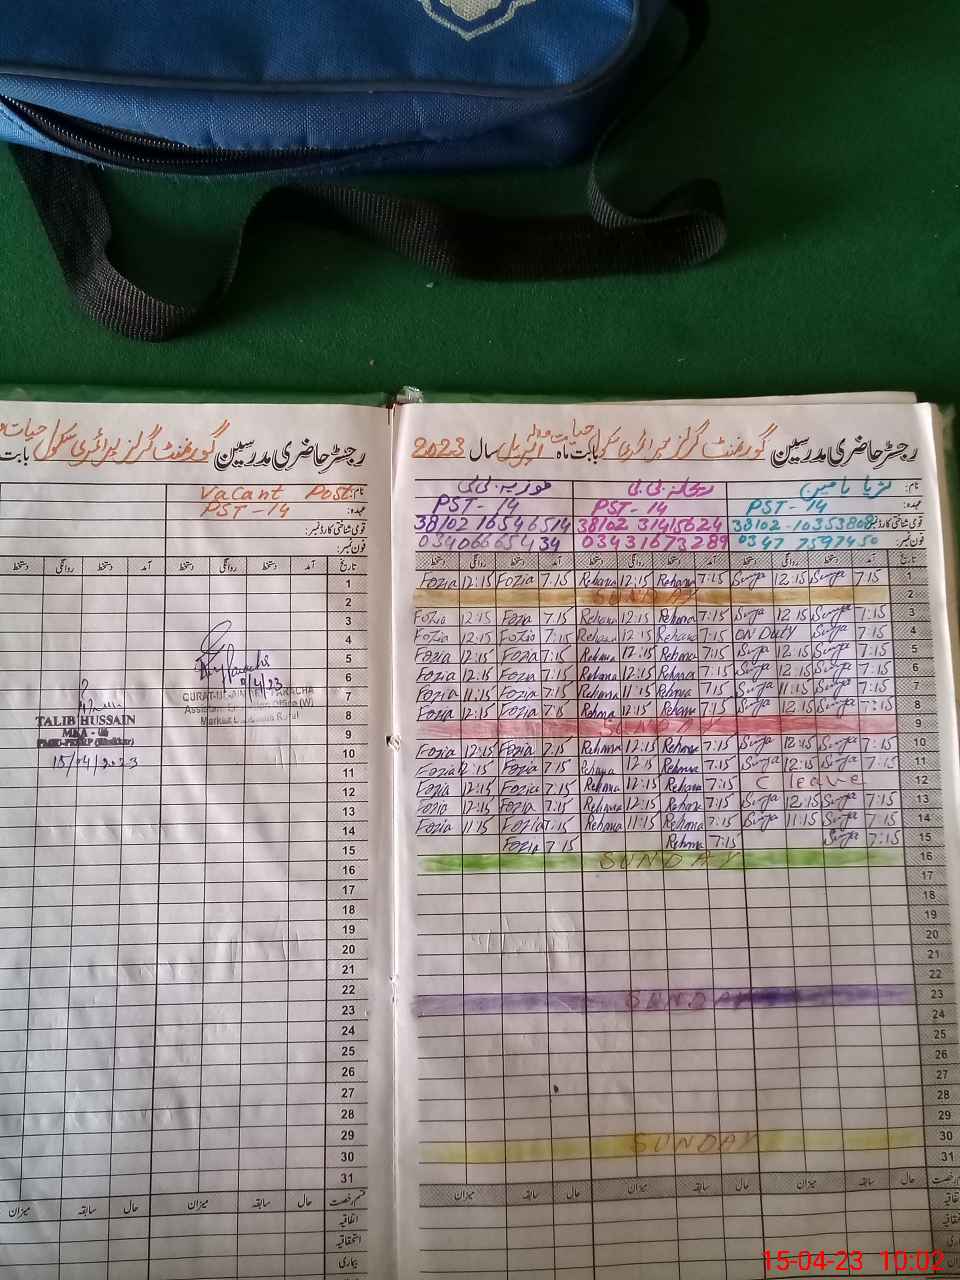 رجسٹر حاضری مدرسین گورنمنٹ گرلز پرائمری سکول حیات و بابت
نام: Vacant Post
عہدہ: PST-14
قومی شناختی کارڈ نمبر:
فون نمبر:
تاریخ آمد دستخط روانگی دستخط آمد دستخط روانگی دستخط
1
2
3
4
5
6
7
8
9
10
11
12
13
14
15
16
17
18
19
20
21
22
23
24
25
26
27
28
29
30
31
9/4/23
QURAT-UL-AIN PARACHA
TALIB HUSSAIN
MEA - 06
15/04/2023
قسم رخصت حال سابقہ میزان حال سابقہ میزان
اتفاقیہ
استحقاقیہ
بیماری
رجسٹر حاضری مدرسین گورنمنٹ گرلز پرائمری سکول حیات والی بابت ماہ اپریل سال 2023
نام: ثریا یاسمین ریحانہ بی بی فوزیہ بی بی
عہدہ: PST-14 PST-14 PST-14
قومی شناختی کارڈ نمبر: 38102-10353808 38102 31415624 38102 16546514
فون نمبر: 0347 7597450 03431673289 03406665434
تاریخ آمد دستخط روانگی دستخط آمد دستخط روانگی دستخط آمد دستخط روانگی دستخط
Fozia 12:15 Fozia 7.15 Rehana 12:15 Rehana 7:15 Surya 12:15 Surya 7.15 1
SUNDAY 2
Fozia 12:15 Fozia 7.15 Rehana 12:15 Rehana 7:15 Surya 12:15 Surya 7:15 3
Fozia 12:15 Fozia 7:15 Rehana 12:15 Rehana 7:15 ON Duty Surya 7:15 4
Fozia 12:15 Fozia 7:15 Rehana 12:15 Rehana 7:15 Surya 12:15 Surya 7:15 5
Fozia 12:15 Fozia 7:15 Rehana 12:15 Rehana 7:15 Surya 12:15 Surya 7:15 6
Fozia 11:15 Fozia 7:15 Rehana 11:15 Rehana 7:15 Surya 11:15 Surya 7:15 7
Fozia 12:15 Fozia 7.15 Rehana 12:15 Rehana 7:15 Surya 12:15 Surya 7:15 8
SUNDAY 9
Fozia 12:15 Fozia 7.15 Rehana 12:15 Rehana 7:15 Surya 12:15 Surya 7:15 10
Fozia 12:15 Fozia 7.15 Rehana 12:15 Rehana 7:15 Surya 12:15 Surya 7:15 11
Fozia 12:15 Fozia 7.15 Rehana 12:15 Rehana 7:15 C leave 12
Fozia 12:15 Fozia 7.15 Rehana 12:15 Rehana 7:15 Surya 12:15 Surya 7:15 13
Fozia 11:15 Fozia 7.15 Rehana 11:15 Rehana 7:15 Surya 11:15 Surya 7:15 14
Fozia 7.15 Rehana 7:15 Surya 7:15 15
SUNDAY 16
17
18
19
20
21
22
SUNDAY 23
24
25
26
27
28
29
SUNDAY 30
31
حال سابقہ میزان حال سابقہ میزان حال سابقہ میزان
15-04-23 10:02